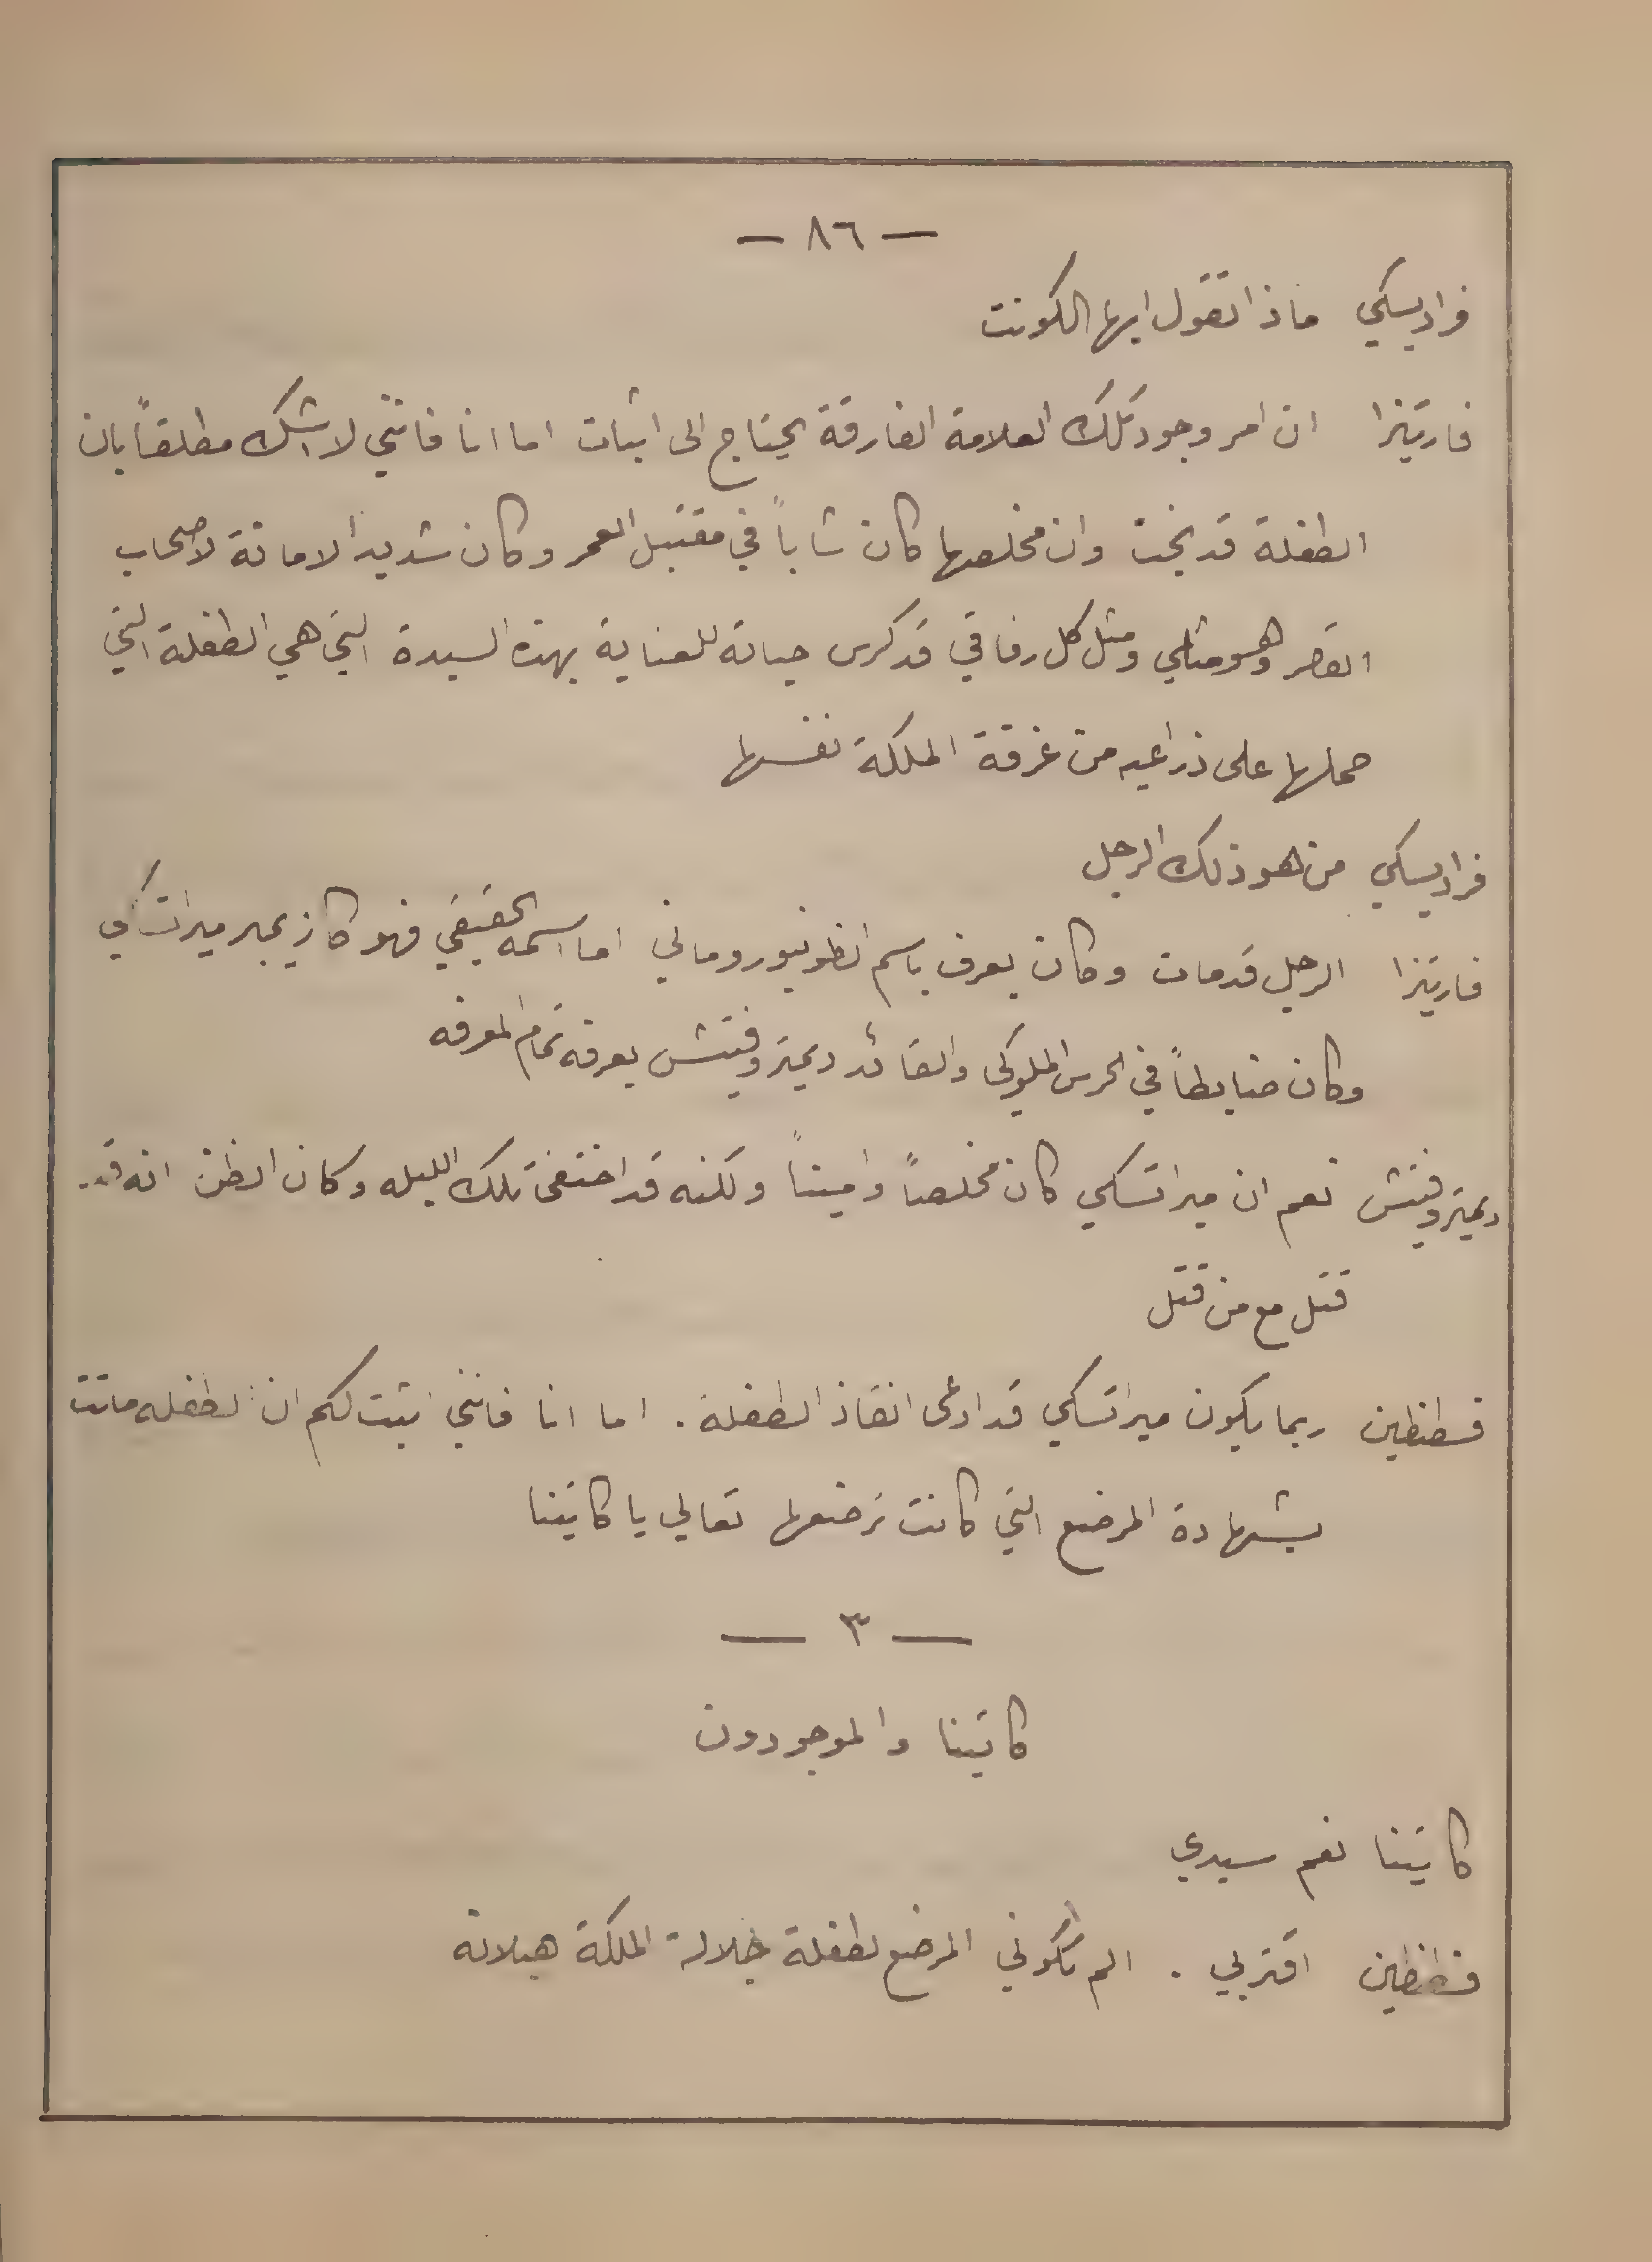 — ٨٦ —
فراديسكي ماذا تقول ايها الكونت
فارتيزا ان امر وجود تلك العلامة الفارقة يحتاج الى اثبات اما انا فانني لا اشك مطلقاً بان
الطفلة قد نجت وان مخلصها كان شاباً في مقتبل العمر وكان شديد الامانة لاصحاب
القصر وهو مثلي ومثل كل رفاقي قد كرس حياته للعناية بهذه السيدة التي هي الطفلة التي
حملها على ذراعيه من غرفة الملكة نفسها
فراديسكي من هو ذلك الرجل
فارتيزا الرجل قد مات وكان يعرف باسم انطونيو روماني اما اسمه الحقيقي فهو كازيمير ميراتسكي
وكان ضابطاً في الحرس الملوكي والقائد ديمتروفتش يعرفه تمام المعرفه
ديمتروفتش نعم ان ميراتسكي كان مخلصاً واميناً ولكنه قد اختفى تلك الليله وكان الظن انه قد
قتل مع من قتل
قسطنطين ربما يكون ميراتسكي قد ادعى انقاذ الطفلة . اما انا فانني اثبت لكم ان الطفله ماتت
بشهادة المرضع التي كانت ترضعها تعالي يا كاتينا
— ٣ —
كاتينا والموجودون
كاتينا نعم سيدي
قسطنطين اقتربي . الم تكوني المرضع لطفلة جلالة الملكة هيلانه